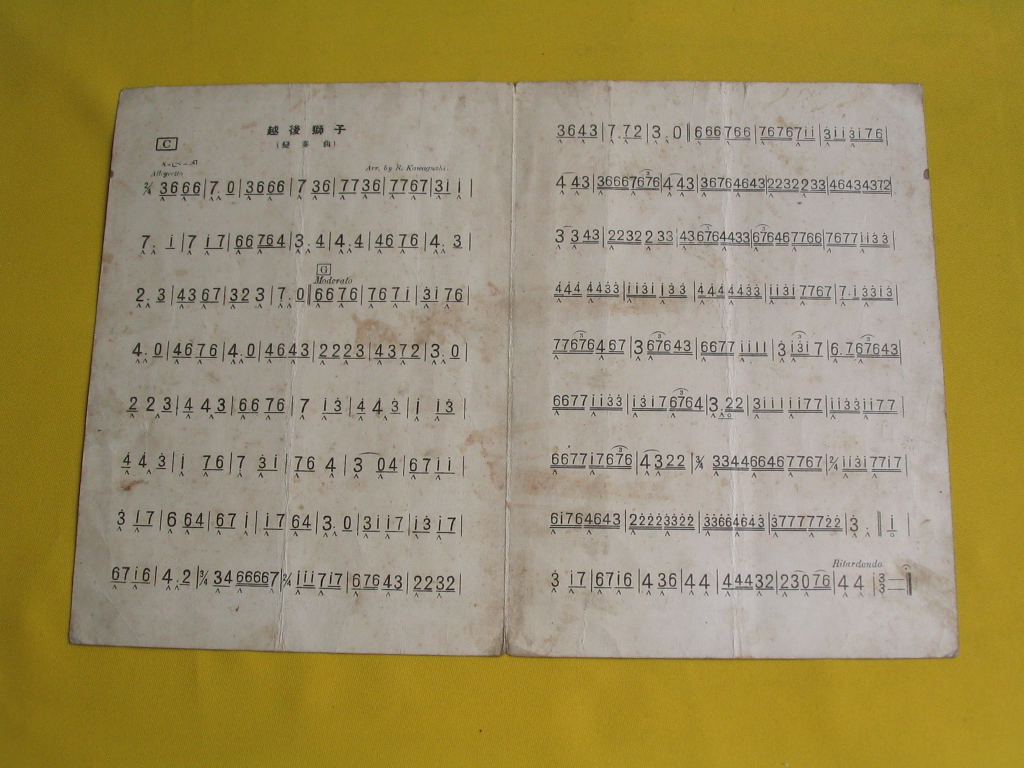 越後獅子
C
Allegretto
Arr. by R. Kawaguchi.
2/4 3666|7. 0|3666|7 36|7736|7767|3i i|
7. i|7 i7|66764|3. 4|4. 4|46 76|4. 3|
G
Moderato
2. 3|4367|323|7. 0‖6676|767i|3i76|
4. 0|4676|4. 0|4643|2223|4372|3. 0|
2 23|4 43|6676|7 i3|4 43|i i3|
4 43|i 76|7 3i|76 4|3 04|67ii|
3 i7|6 64|67 i|i7 64|3. 0|3ii7|i3i7|
67i6|4. 2|3/4 34 66667|2/4 iii7i7|67643|2232|
3643|7. 72|3. 0‖666766|76767ii|3ii3i76|
4 43|36667676|4 43|36764643|2232233|46434372|
3 343|2232233|436764433|676467766|7677ii33|
4444433|ii3ii33|44444433|ii3i7767|7.i33i3|
77676467|3 67643|6677iiii|3 i3i7|6.767643|
6677ii33|i3i76764|3. 22|3iiiii77|ii33ii77|
6677i7676|4322|3/4 334466467767|2/4 ii3i77i7|
6i764643|22223322|33664643|37777722|3. ‖i|
Ritardando
3 i7|67i6|4 36|4 4|44432|23076|4 4|3 3—‖